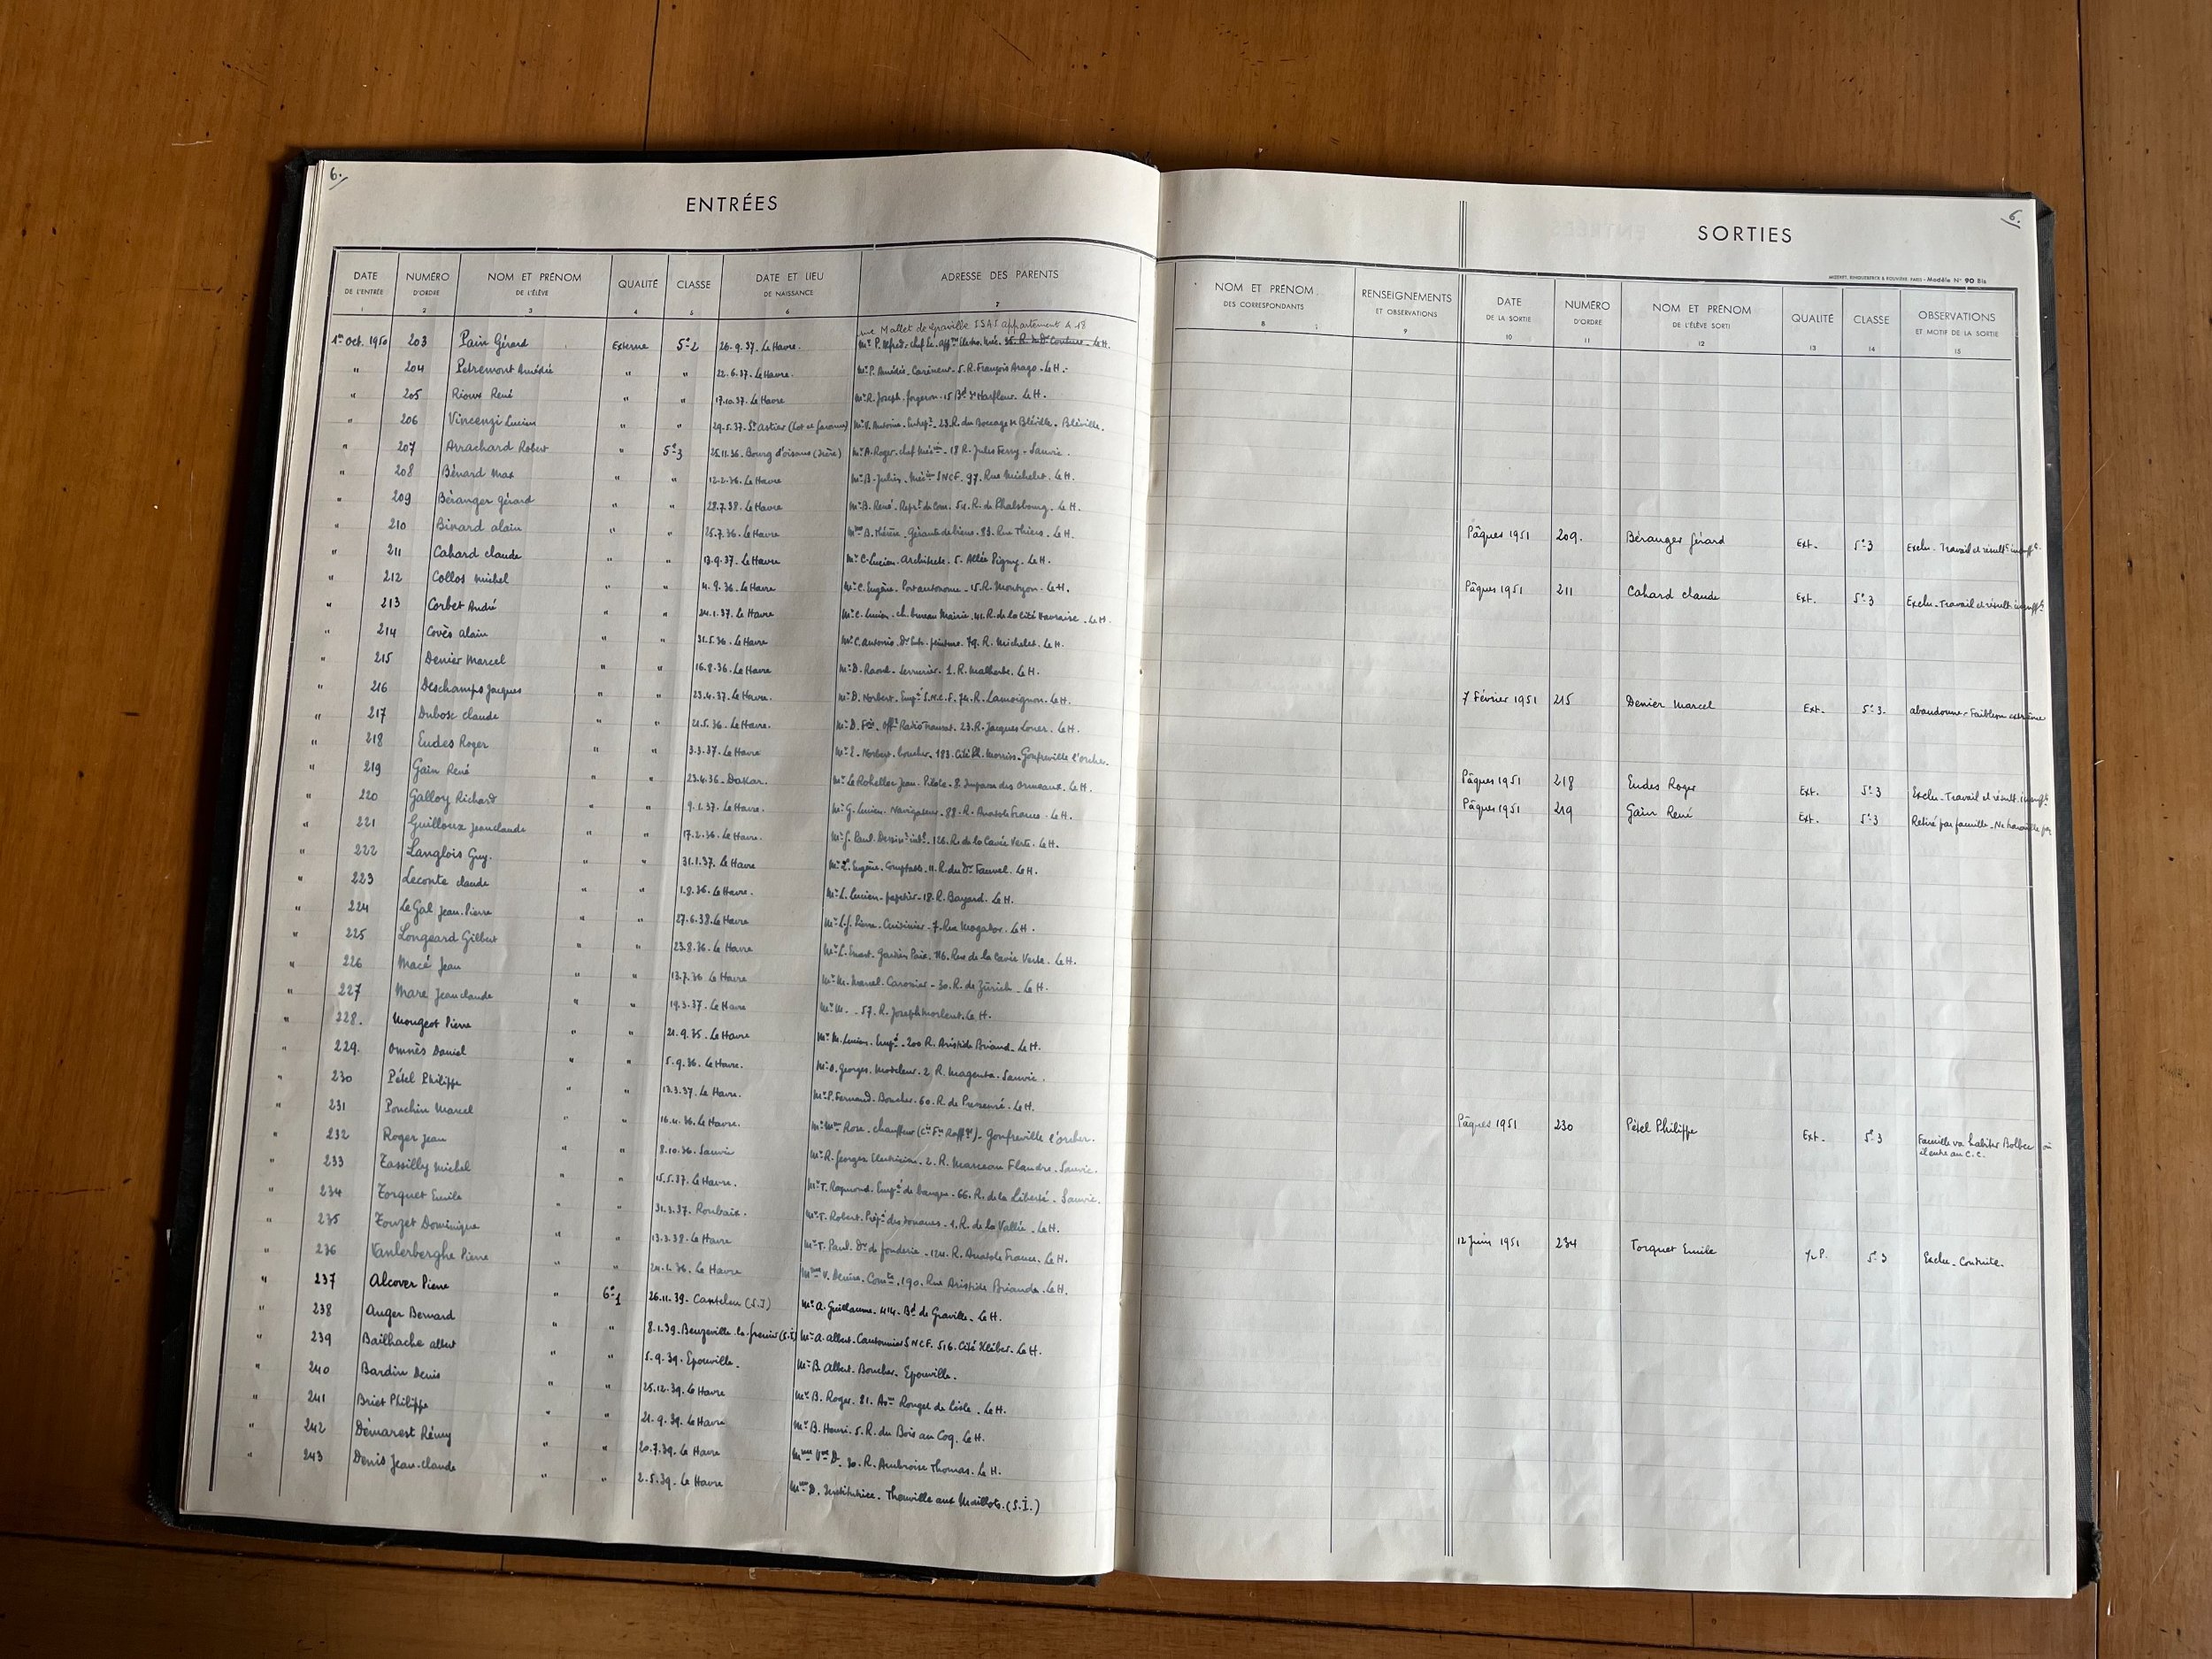 6.
ENTRÉES
DATE DE L'ENTRÉE NUMÉRO D'ORDRE NOM ET PRÉNOM DE L'ÉLÈVE QUALITÉ CLASSE DATE ET LIEU DE NAISSANCE ADRESSE DES PARENTS
1 2 3 4 5 6 7
rue Mallet de Graville ISAI appartement 48
1er Oct. 1950 203 Pain Gérard Externe 5e2 26.9.37. Le Havre. Mr P. Alfred. chef Se. R. du Dr Couture. Le H.
" 204 Petremont Amédée " " 22.6.37. Le Havre. Mr P. Amédée. 5. R. François Arago. Le H.
" 205 Rioux René " " 17.10.37. Le Havre Mr R. Joseph. forgeron. 15 Bd d'Harfleur. Le H.
" 206 Vincenzi Lucien " " 29.5.37. St Astier (Lot et Garonne) Mr V. Antoine. Entrepr. 23. R. du Boccage de Bléville. Bléville.
" 207 Arrachard Robert " 5e3 25.11.36. Bourg d'oisans (Isère) Mr A. Roger. chef mécien. 18 R. Jules Ferry. Sanvic.
" 208 Bénard Max " " 12.2.36. Le Havre Mr B. Julien. Mécien SNCF. 97. Rue Michelet. Le H.
" 209 Béranger Gérard " " 28.7.38. Le Havre Mr B. René. Reprt de Com. 54. R. de Phalsbourg. Le H.
" 210 Binard alain " " 25.7.36. Le Havre Mme B. Thérèse. Gérante. 83. Rue Thiers. Le H.
" 211 Cahard claude " " 13.9.37. Le Havre Mr C. Lucien. Architecte. 5. Allée Pigny. Le H.
" 212 Collos Michel " " 4.9.36. Le Havre Mr C. Eugène. Port autonome. 15. R. Montyon. Le H.
" 213 Corbet André " " 24.1.37. Le Havre Mr C. Lucien. ch. bureau Mairie. 41. R. de la Cité Havraise. Le H.
" 214 Covès alain " " 31.5.36. Le Havre Mr C. Antonio. Dr Entr. peinture. 79. R. Michelet. Le H.
" 215 Denier Marcel " " 16.8.36. Le Havre Mr D. Raoul. Serrurier. 1. R. Malherbe. Le H.
" 216 Deschamps Jacques " " 23.4.37. Le Havre. Mr D. Norbert. Empé S.N.C.F. 74. R. Lamoignon. Le H.
" 217 Dubosc claude " " 21.5.36. Le Havre. Mr D. Offr Radio Transat. 23. R. Jacques Louer. Le H.
" 218 Eudes Roger " " 3.3.37. Le Havre Mr E. Norbert. boucher. 183. Cité Ph. Morriss. Gonfreville l'orcher.
" 219 Gain René " " 23.4.36. Dakar. Mr Le Rohellec Jean. Pilote. 8. Impasse des ormeaux. Le H.
" 220 Galloy Richard " " 9.1.37. Le Havre. Mr G. Lucien. Navigateur. 88. R. Anatole France. Le H.
" 221 Guilloux Jean claude " " 17.2.36. Le Havre. Mr G. Paul. 126. R. de la Cavée Verte. Le H.
" 222 Langlois Guy. " " 31.1.37. Le Havre Mr L. Eugène. Comptable. 11. R. du Dr Fauvel. Le H.
" 223 Leconte claude " " 1.8.36. Le Havre. Mr L. Lucien. papetier. 18. R. Bayard. Le H.
" 224 Le Gal Jean-Pierre " " 27.6.38. Le Havre Mr L.G. Pierre. Cuisinier. 7. Rue Mogador. Le H.
" 225 Longeard Gilbert " " 23.8.36. Le Havre Mr L. Ernest. Gardien Paix. 116. Rue de la Cavée Verte. Le H.
" 226 Macé Jean " " 13.7.36 Le Havre Mr M. Marcel. 30. R. de Zürich. Le H.
" 227 Mare Jean claude " " 19.3.37. Le Havre Mr M. 57. R. Joseph Morlent. Le H.
" 228. Mongeot Pierre " " 21.9.35. Le Havre Mr M. Lucien. Empé. 200 R. Aristide Briand. Le H.
" 229. Omnès Daniel " " 5.9.36. Le Havre. Mr O. Georges. Modeleur. 2 R. Magenta. Sanvic.
" 230 Pétel Philippe " " 13.3.37. Le Havre. Mr P. Fernand. Boucher. 60. R. de Pressensé. Le H.
" 231 Pouchin Marcel " " 16.4.36. Le Havre. Mr Mme Rose. chauffeur (Cie Fse Raffge). Gonfreville l'orcher.
" 232 Roger Jean " " 8.10.36. Sanvic Mr R. Georges Electricien. 2. R. Marceau Flandre. Sanvic.
" 233 Tassilly Michel " " 15.5.37. Le Havre. Mr T. Raymond. Empé de banque. 66. R. de la Liberté. Sanvic.
" 234 Torquet Emile " " 31.3.37. Roubaix. Mr T. Robert. Prépé des douanes. 1. R. de la Vallée. Le H.
" 235 Touzet Dominique " " 13.3.38. Le Havre Mr T. Paul. Dr de fonderie. 124. R. Anatole France. Le H.
" 236 Vanlerberghe Pierre " " 24.1.36. Le Havre Mme V. Denise. 190. Rue Aristide Briand. Le H.
" 237 Alcover Pierre " 6e1 26.11.39. Canteleu (S.I) Mr A. Guillaume. 414. Bd de Graville. Le H.
" 238 Auger Bernard " " 8.1.39. Beuzeville la grenier (S.I) Mr A. Albert. Cantonnier SNCF. 516. Cité Kléber. Le H.
" 239 Bailhache albert " " 5.9.39. Epouville. Mr B. Albert. Boucher. Epouville.
" 240 Bardin Denis " " 25.12.39. Le Havre Mr B. Roger. 81. Ave Rouget de Lisle. Le H.
" 241 Briet Philippe " " 21.9.39. Le Havre Mr B. Henri. 5. R. du Bois au Coq. Le H.
" 242 Démarest Rémy " " 20.7.39. Le Havre Mme Vve D. 30. R. Ambroise Thomas. Le H.
" 243 Denis Jean-claude " " 2.5.39. Le Havre Mme D. Institutrice. Theuville aux Maillots. (S.I.)
6.
SORTIES
Modèle N° 90 Bis
NOM ET PRÉNOM DES CORRESPONDANTS RENSEIGNEMENTS ET OBSERVATIONS DATE DE LA SORTIE NUMÉRO D'ORDRE NOM ET PRÉNOM DE L'ÉLÈVE SORTI QUALITÉ CLASSE OBSERVATIONS ET MOTIF DE LA SORTIE
8 9 10 11 12 13 14 15
Pâques 1951 209. Béranger Gérard Ext. 5e3 Exclu. Travail et résultts insuffts.
Pâques 1951 211 Cahard claude Ext. 5e3 Exclu. Travail et résult. insuffts.
7 Février 1951 215 Denier Marcel Ext. 5e3. abandonne. Faiblesse extrême
Pâques 1951 218 Eudes Roger Ext. 5e3 Exclu. Travail et résult. insuffts
Pâques 1951 219 Gain René Ext. 5e3 Retiré par famille. Ne travaille pas
Pâques 1951 230 Pétel Philippe Ext. 5e3 Famille va habiter Bolbec où
il entre au C.C.
12 Juin 1951 234 Torquet Emile ½ P. 5e3 Exclu. Conduite.